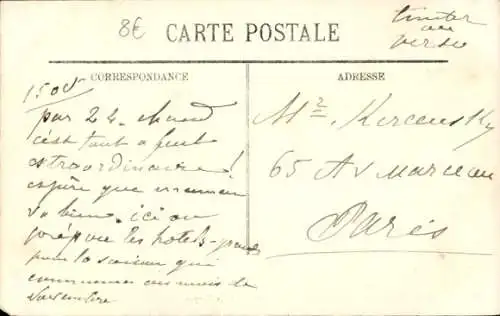 8€
timbre
au
verso
CARTE POSTALE
CORRESPONDANCE
ADRESSE
par 24. chaud
c'est tout a fait
extraordinaire!
espère que maman
va bien. ici on
prépare les hotels
pour la saison qui
commence au mois de
Novembre
Mr. Kerensky
65 Av Marceau
Paris